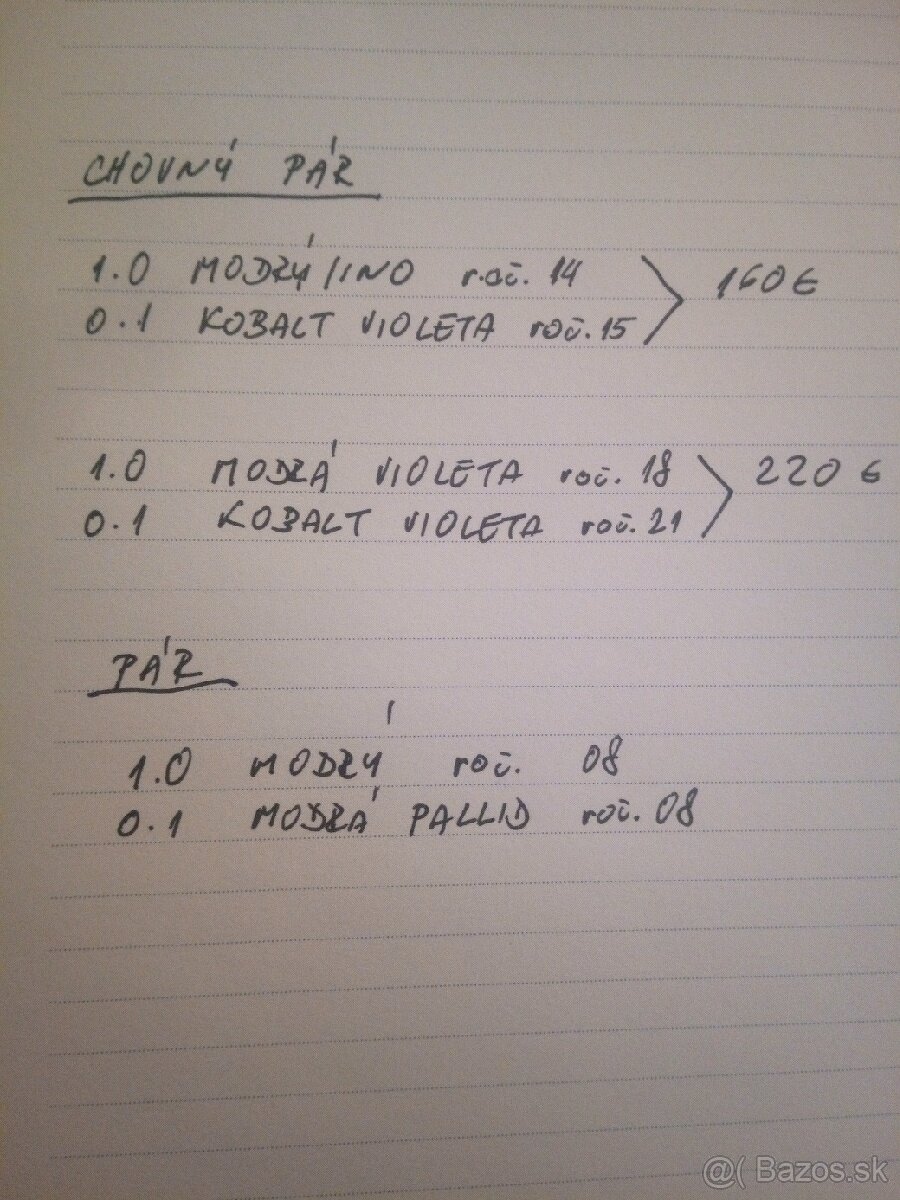 CHOVNÝ PÁR
1.0 MODRÝ/INO roč. 14
0.1 KOBALT VIOLETA roč. 15
160 €
1.0 MODRÁ VIOLETA roč. 18
0.1 KOBALT VIOLETA roč. 21
220 €
PÁR
1.0 MODRÝ roč. 08
0.1 MODRÁ PALLID roč. 08
@( Bazos.sk